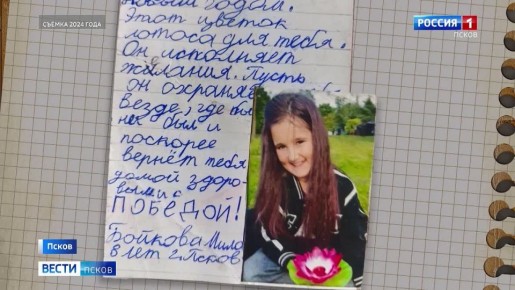 СЪЁМКА 2024 ГОДА
РОССИЯ 1
ПСКОВ
Новым годом.
Этот цветок
лотоса для тебя.
Он исполняет
желания. Пусть
он охраняе
везде, где бы
не был и
поскорее
вернёт тебя
домой здоро-
вым и с
ПОБЕДОЙ!
Бойкова Мила
8 лет г. Псков
Псков
ВЕСТИ ПСКОВ